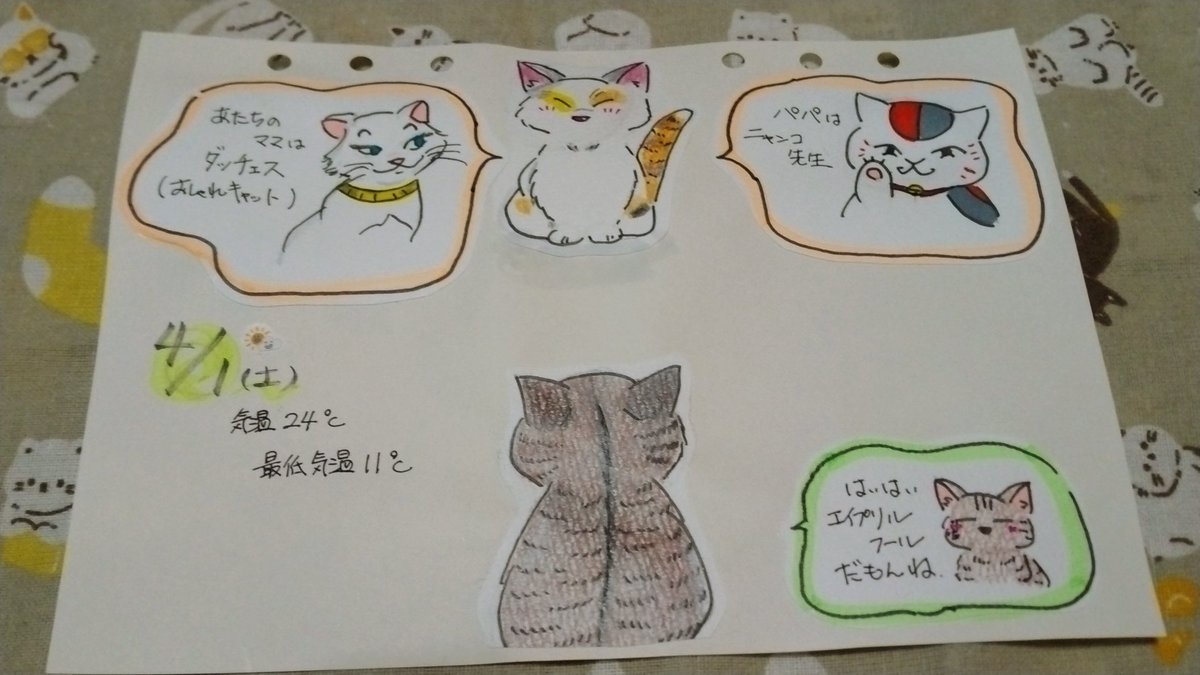 あたちの
ママは
ダッチェス
(おしゃれキャット)
パパは
ニャンコ
先生
4/1(土)
気温24℃
最低気温11℃
はいはい
エイプリル
フール
だもんね.